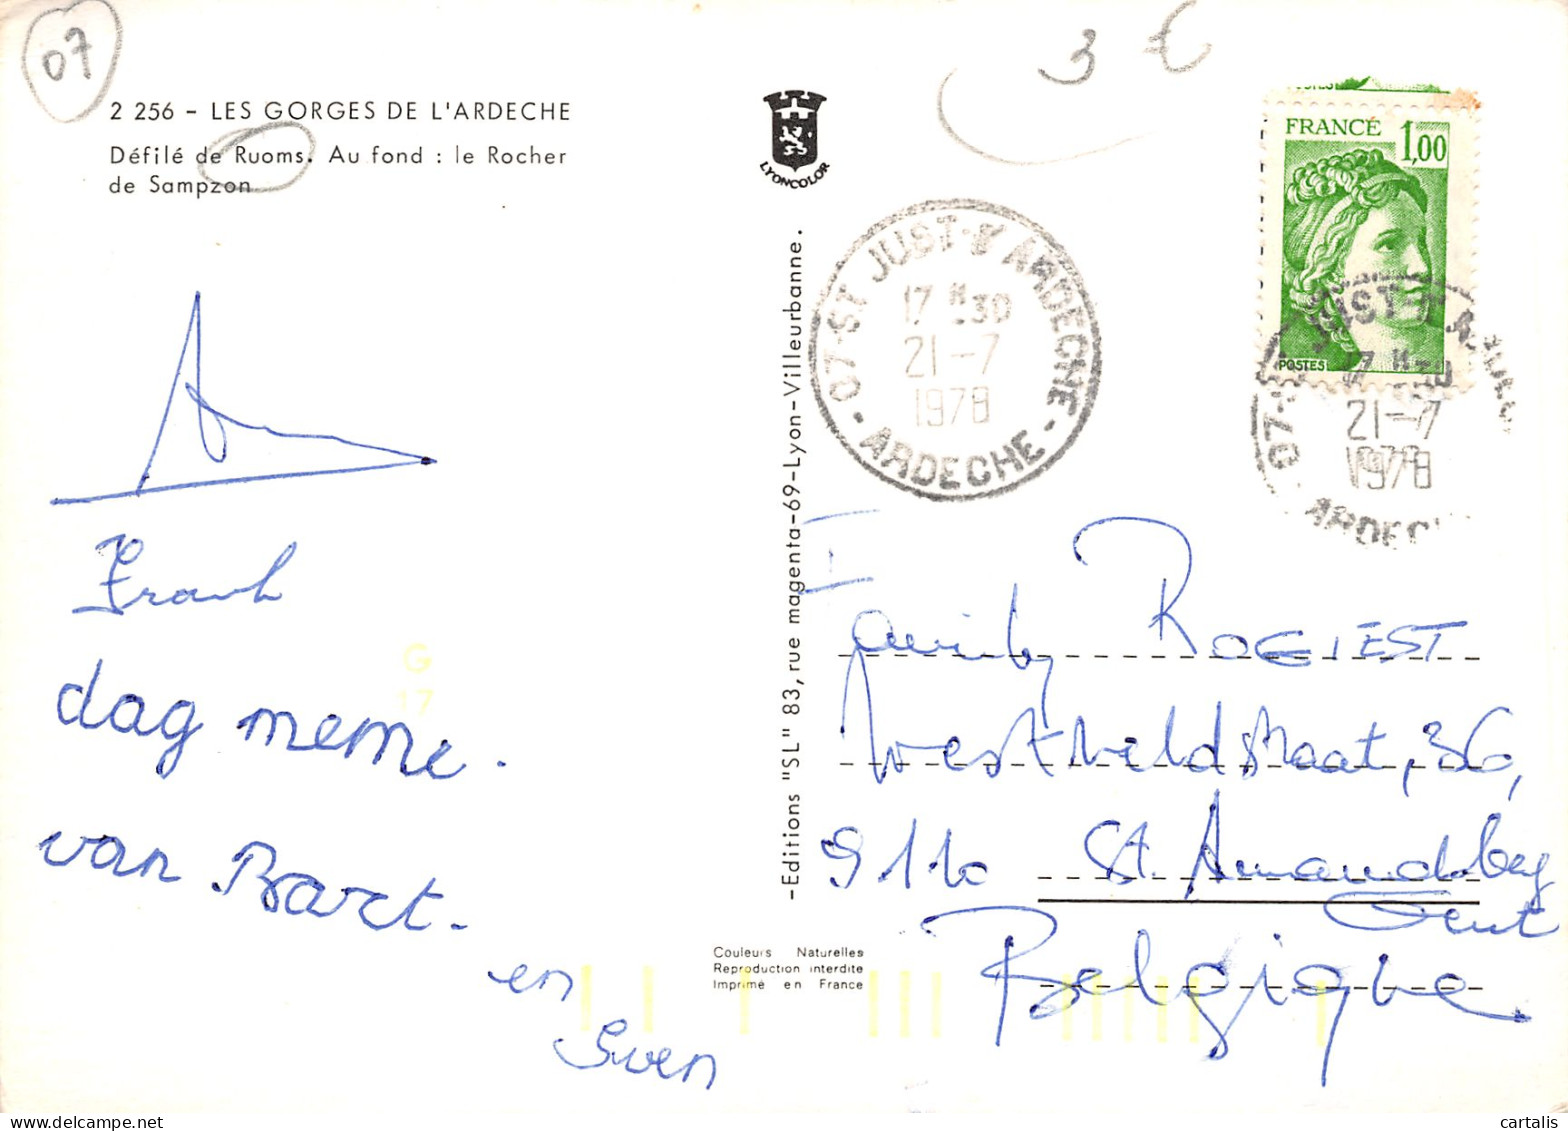 07
3 €
2 256 – LES GORGES DE L'ARDECHE
Défilé de Ruoms. Au fond : le Rocher
de Sampzon
LYONCOLOR
FRANCE
1,00
POSTES
07-ST JUST-D'ARDECHE
17 H 30
21-7
1978
- ARDECHE -
17 H 30
21-7
1978
ARDEC
Frank
dag meme.
van Bart.
en
Sven
G
17
-Editions "SL" 83, rue magenta-69-Lyon-Villeurbanne.
Couleurs Naturelles
Reproduction interdite
Imprimé en France
Family ROGIEST
Westveldstraat, 36,
9110 St. Amandsberg
Gent
Belgique
cartalis